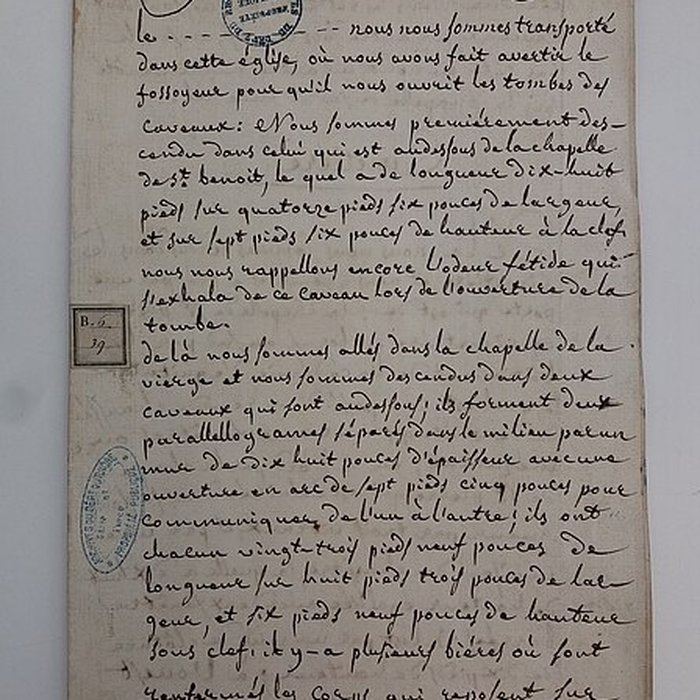 le - - - - - - - - nous nous sommes transporté
dans cette église, où nous avons fait avertir le
fossoyeur pour qu'il nous ouvrit les tombes des
caveaux: Nous sommes premiérement des-
cendu dans celui qui est audessous de la chapelle
de St. benoit, le quel a de longueur dix-huit
pieds sur quatorze pieds six pouces de largeur,
et sur sept pieds six pouces de hauteur à la clef,
nous nous rappellons encore l'odeur fétide qui
s'exhala de ce caveau lors de l'ouverture de la
tombe.
B. 6
39
de là nous sommes allés dans la chapelle de la
vierge et nous sommes descendus dans deux
caveaux qui sont audessous; ils forment deux
parallellogrames séparés dans le milieu par un
mur de dix huit pouces d'épaisseur avec une
ouverture en arc de sept pieds cinq pouces pour
communiquer de l'un à l'autre; ils ont
chacun vingt-trois pieds neuf pouces de
longueur sur huit pieds trois pouces de lar-
geur, et six pieds neuf pouces de hauteur
sous clef; il y-a plusieurs biéres où sont
renfermés les corps qui reposent sur